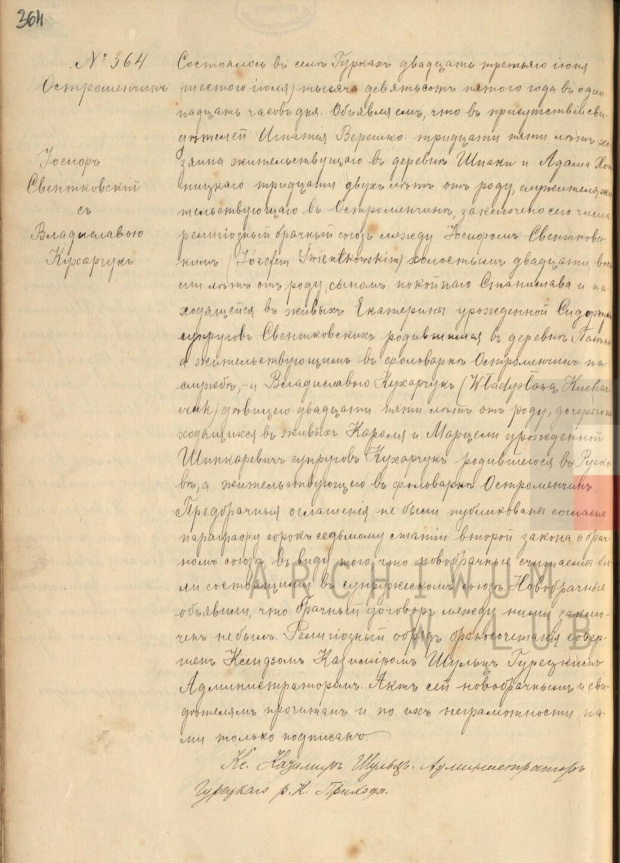 364
№ 364.
Остроменчинъ
Іосифъ
Свентковскій
съ
Владиславою
Кухарчукъ
Состоялось въ селѣ Гуркахъ двадцать третьяго іюня
шестого іюля) тысяча девятьсотъ пятого года въ один-
надцать часовъ дня. Объявляемъ, что въ присутствіи сви-
дѣтелей Игнатія Верешко тридцати пяти лѣтъ хо-
зяина жительствующаго въ деревнѣ Шпаки и Адама
ницкаго тридцати двухъ лѣтъ отъ роду, служителя, жи-
тельствующаго въ Остроменчинѣ, заключенъ сего числа
религіозный брачный союзъ между Іосифомъ Свентковс-
кимъ (Józefem Świentkowskim) холостымъ двадцати вось-
ми лѣтъ отъ роду, сыномъ покойнаго Станислава и на-
ходящейся въ живыхъ Екатерины урожденной
супруговъ Свентковскихъ родившимся въ деревнѣ
а жительствующимъ въ фольваркѣ Остроменчинъ на
службѣ, и Владиславою Кухарчукъ (Władysławą Kuchar-
czuk) дѣвицею двадцати пяти лѣтъ отъ роду, дочерью на-
ходящихся въ живыхъ Кароля и Марцели урожденной
Шинкаревичъ супруговъ Кухарчукъ родившеюся въ
а жительствующею въ фольваркѣ Остроменчинъ.
Предбрачныя оглашенія не были публикованы согласно
параграфу сорокъ седьмому статіи второй закона о брач-
номъ союзѣ въ виду того, что новобрачные считаемы бы-
ли состоящими въ супружескомъ союзѣ. Новобрачные
объявили, что брачный договоръ между ними заклю-
ченъ не былъ. Религіозный обрядъ бракосочетанія совер-
шенъ Ксендзомъ Казиміромъ Шульцъ Гурецкимъ
Администраторомъ. Актъ сей новобрачнымъ и сви-
дѣтелямъ прочитанъ и по ихъ неграмотности на-
ми только подписанъ.
Кс. Казиміръ Шульцъ. Администраторъ
Гурецкаго р. К. Прихода.
ARCHIWUM
W LUB